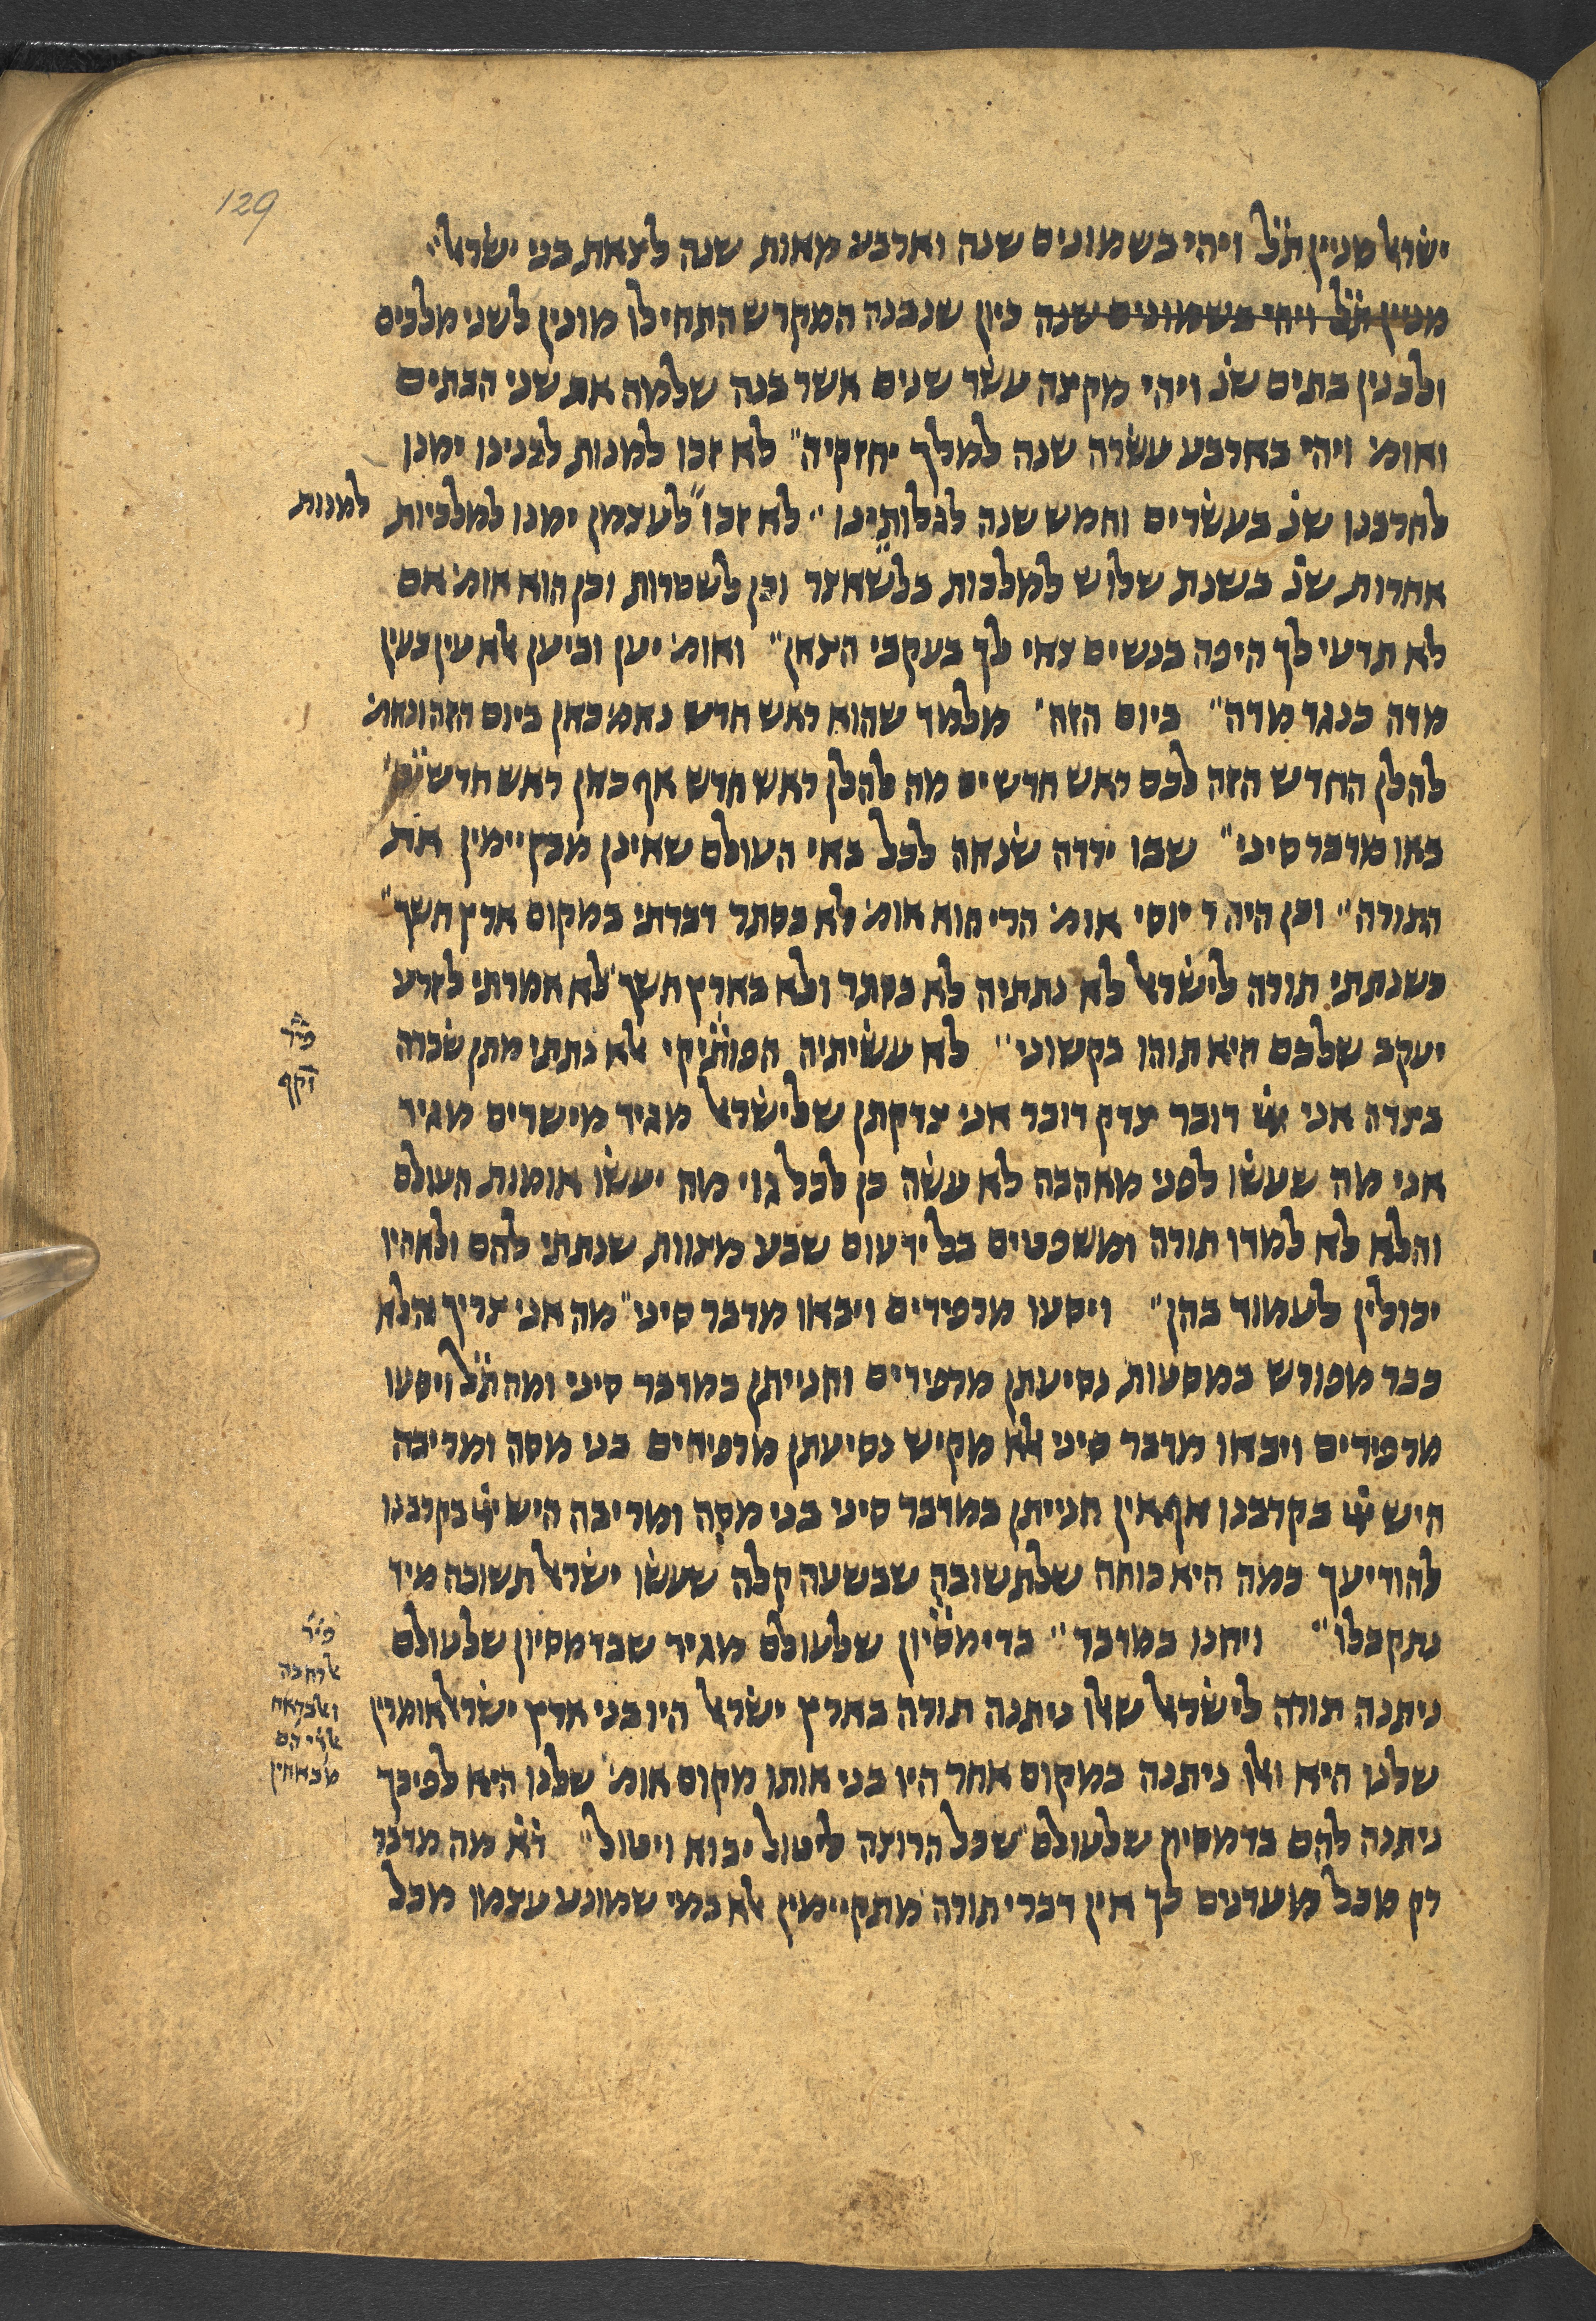 129
ישׂראל מניין תׄל ויהי בשמונים שנה וארבע מאות שנה לצאת בני ישׂראל״
מניין תׄל ויהי בשמונים שנה כיון שנבנה המקדש התחילו מונין לשני מלכים
ולבנין בתים שנׄ ויהי מקצה עשׂר שנים אשר בנה שלמה את שני הבתים
ואומ׳ ויהי בארבע עשׂרה שנה למלך יחזקיה״ לא זכו למנות לבנינו ימנו
לחרבנו שנׄ בעשׂרים וחמש שנה לגלותינו״ לא זכו״לעצמן ימנו למלכיות
למנות
אחרות שנׄ בשנת שלוש למלכות בלשאצר וכן לשטרות וכן הוא אומ׳ אם
לא תדעי לך היפה בנשים צאי לך בעקבי הצאן״ ואומ׳ יען וביען אלא עין בעין
מדה כנגד מדה״ ביום הזה״ מלמד שהוא ראש חדש נאמ׳ כאן ביום הזה ונאמ׳
להלן החדש הזה לכם ראש חדשים מה להלן ראש חדש אף כאן ראש חדשים״
באו מדבר סיני״ שבו ירדה שׂנאה לכל באי העולם שאינן מקיימין את
התורה״ וכן היה ר יוסי אומ׳ הרי הוא אומ׳ לא בסתר דברתי במקום ארץ חשך״
כשנתתי תורה לישׂראל לא נתתיה לא בסתר ולא בארץ חשך לא אמרתי לזרע
יעקב שלכם היא תוהו בקשוני״ לא עשׂיתיה הפותיקי אלא נתתי מתן שׂכרה
פיר
זקף
בצדה אני ייי דובר צדק דובר אני צדקתן שלישׂראל מגיד מישרים מגיד
אני מה שעשׂו לפני מאהבה לא עשׂה כן לכל גוי מה יעשׂו אומות העולם
והלא לא למדו תורה ומשפטים בל ידעום שבע מצוות שנתתי להם ולא היו
יכולין לעמוד בהן״ ויסעו מרפידים ויבאו מדבר סיני״ מה אני צריך והלא
כבר מפורש במסעות נסיעתן מרפידים וחנייתן במדבר סיני ומה תׄל ויסעו
מרפידים ויבאו מדבר סיני אלא מקיש נסיעתן מרפידים בני מסה ומריבה
היש ייי בקרבנו אף אין חנייתן במדבר סיני בני מסה ומריבה היש ייי בקרבנו
להודיעך כמה היא כוחה שלתשובה שבשעה קלה שעשׂו ישׂראל תשובה מיד
נתקבלו״ ויחנו במדבר״ בדימסיון שלעולם מגיד שבדמסיון שלעולם
פיר
אלרחבה
ניתנה תורה לישׂראל שאלו ניתנה תורה בארץ ישׂראל היו בני ארץ ישׂראל אומרין
שלנו היא ואלו ניתנה במקום אחר היו בני אותו מקום אומ׳ שלנו היא לפיכך
ניתנה להם בדמסיון שלעולם שכל הרוצה ליטול יבוא ויטול״ דׄא מה מדבר
רק מכל מעדנים כך אין דברי תורה מתקיימין אלא במי שמונע עצמו מכל